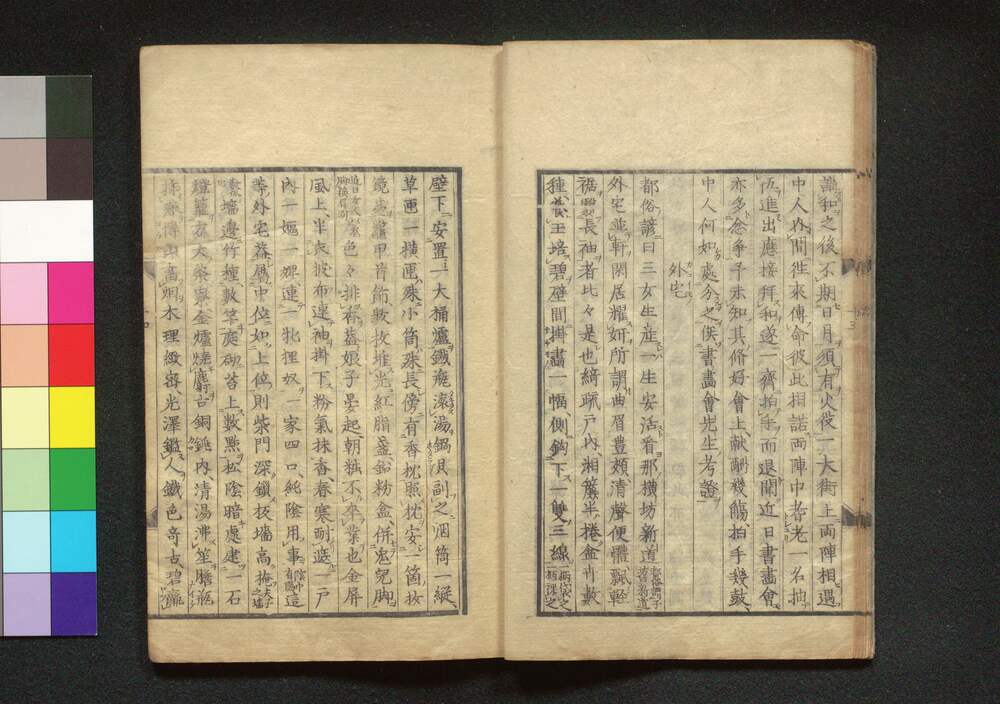 講和之後不期日月須有火役一大街上兩陣相遇
中人內間徃來傳命彼此相諾兩陣中耆老一名抽
而進出應接拜和遂一齊拍手而退聞近日書畫會
亦多念爭予未知其脩好會上献酬幾觴拍手幾鼓
中人何如處分之俟書畫會先生考證
外宅
都俗諺曰三女生産一生安活看那横坊新道
外宅並軒閑居濯妍所謂曲眉豊頬清聲便體飄輕
裾曳長袖者比々是也綺疏戸內湘簾半捲盆卉數
種養玉培碧壁間掛畫一幅側鈎下一雙三線
壁下安置一大桶爐鐵瓶滚湯鍋具副之烟筒一縦
草匣一横匣殊小筒殊長傍有香枕照枕安一箇妝
鏡鼈甲脊節數枚堆光紅脂盞鉛粉盒併兔脚
色々排在盖娘子晏起朝粧不卒業也金屏
風上半衣披布連袖掛下粉氣抹香春寒耐遮一戸
內一嫗一婢連一牝狸奴一家四口純陰用事這
等外宅益風中位如上位則柴門深鎖板墻高掩
墻邊竹種數竿庭砌苔上數點松陰暗處建一石
燈籠夜大寮寮金爐燒麝古銅鍾內清湯沸笙
高烟木理緻密光澤鑑人鐵色竒古碧